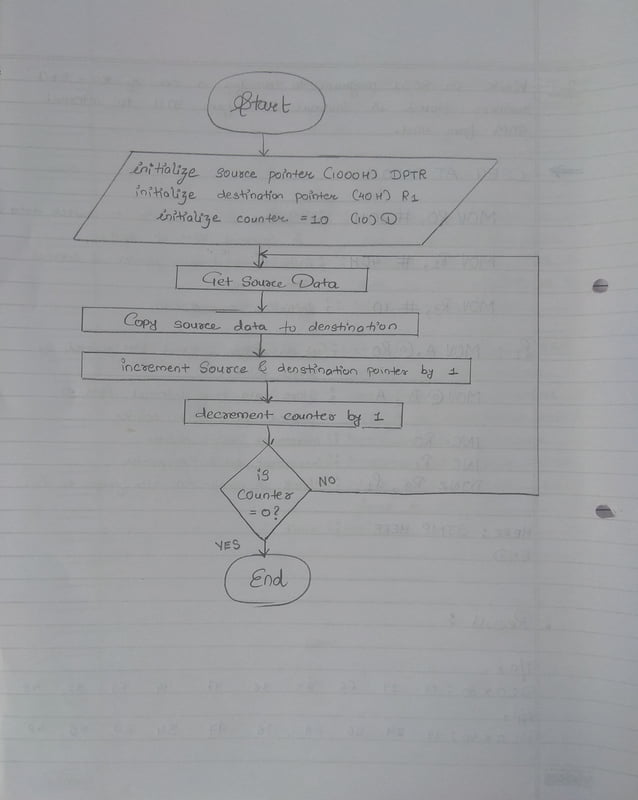 Start
initialize source pointer (1000H) DPTR
initialize destination pointer (40H) R1
initialize counter = 10 (10) D
Get Source Data
Copy source data to denstination
increment Source & denstination pointer by 1
decrement counter by 1
is
counter
= 0?
NO
YES
End